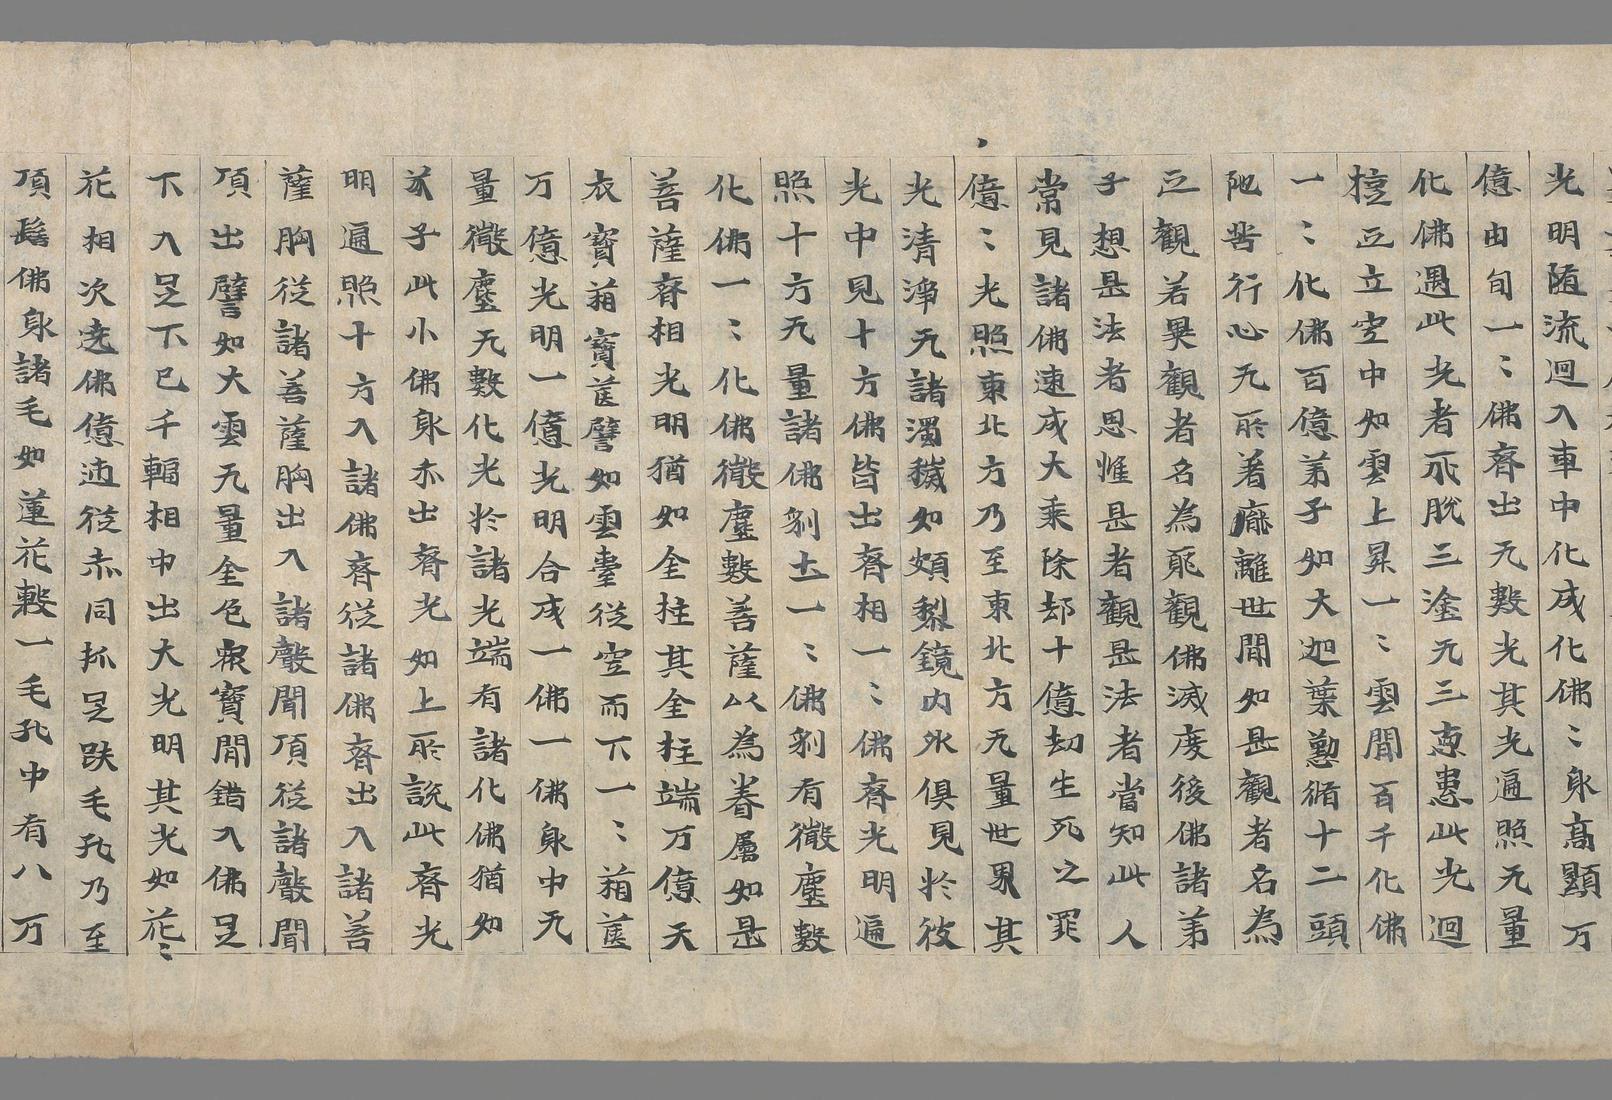 光明随流迴入車中化成化佛〻身高顯万
億由旬一〻佛齊出无數光其光遍照无量
化佛遇此光者永脫三塗无三惡患此光迴
擅立空中如雲上昇一〻雲間百千化佛
一〻化佛百億弟子如大迦葉懃循十二頭
陁苦行心无所著癈離世間如是觀者名為
正觀若異觀者名為耶觀佛滅度後佛諸弟
子想是法者思惟是者觀是法者當知此人
常見諸佛速成大乘除却十億劫生死之罪
億〻光照東北方乃至東北方无量世界其
光清淨无諸濁穢如頗梨鏡內外俱見於彼
光中見十方佛皆出齊相一〻佛齊光明遍
照十方无量諸佛剎土一〻佛剎有微塵數
化佛一〻化佛微塵數菩薩以為眷屬如是
菩薩齊相光明猶如金柱其金柱端万億天
衣寶葙寶篋譬如雲臺從空而下一〻葙篋
万億光明一億光明合成一佛一佛身中无
量微塵无數化光於諸光端有諸化佛猶如
芥子此小佛身亦出齊光如上所說此齊光
明遍照十方入諸佛齊從諸佛齊出入諸菩
薩胸從諸菩薩胸出入諸聲聞頂從諸聲聞
頂出譬如大雲无量金色眾寶間錯入佛足
下入足下下已千輻相中出大光明其光如花〻
花相次遶佛億迊從赤同抓足趺毛孔乃至
頂髻佛身諸毛如蓮花數一毛孔中有八万